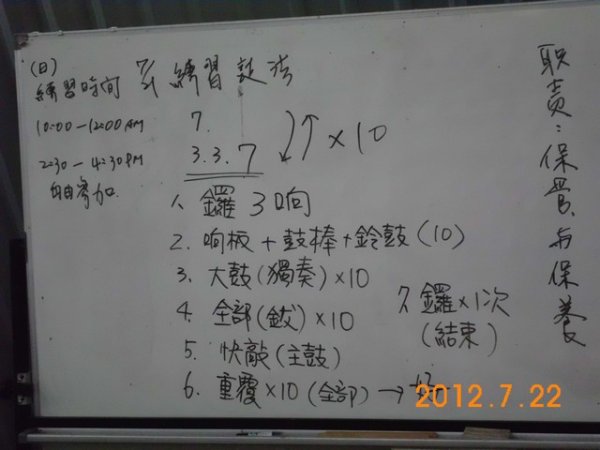 (日)
練習時间
10:00-12:00AM
2:30-4:30PM
自由參加
7/21 練習鼓法
7.
3.3.7
×10
1. 鑼3响
2. 响板+鼓棒+鈴鼓(10)
3. 大鼓(獨奏)×10
4. 全部(鈸)×10
5. 快敲(主鼓)
6. 重覆×10(全部)→
7. 鑼×1次
(結束)
职责:保管与保養
2012.7.22